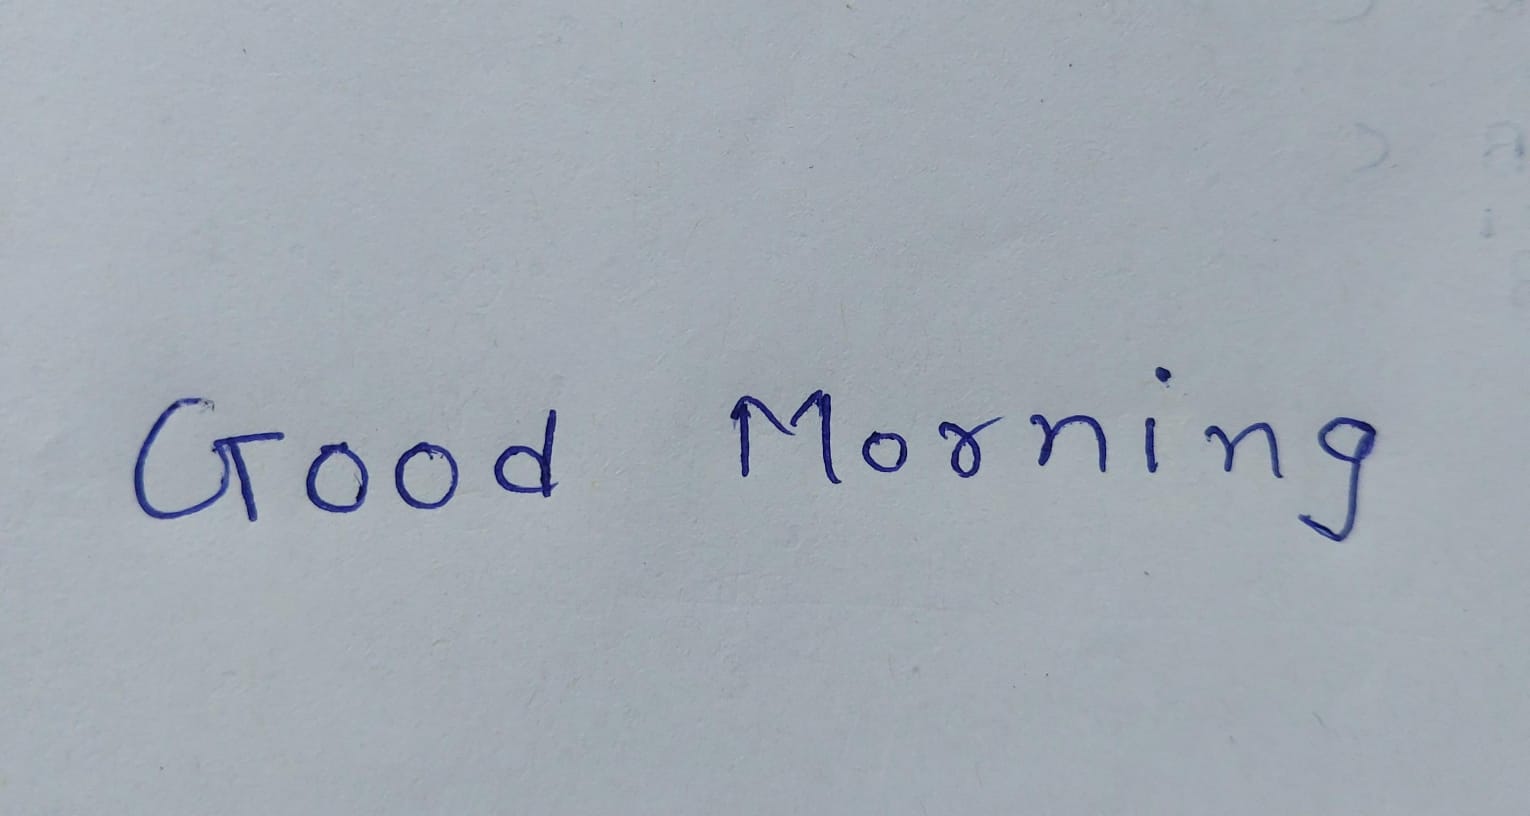 Good Morning